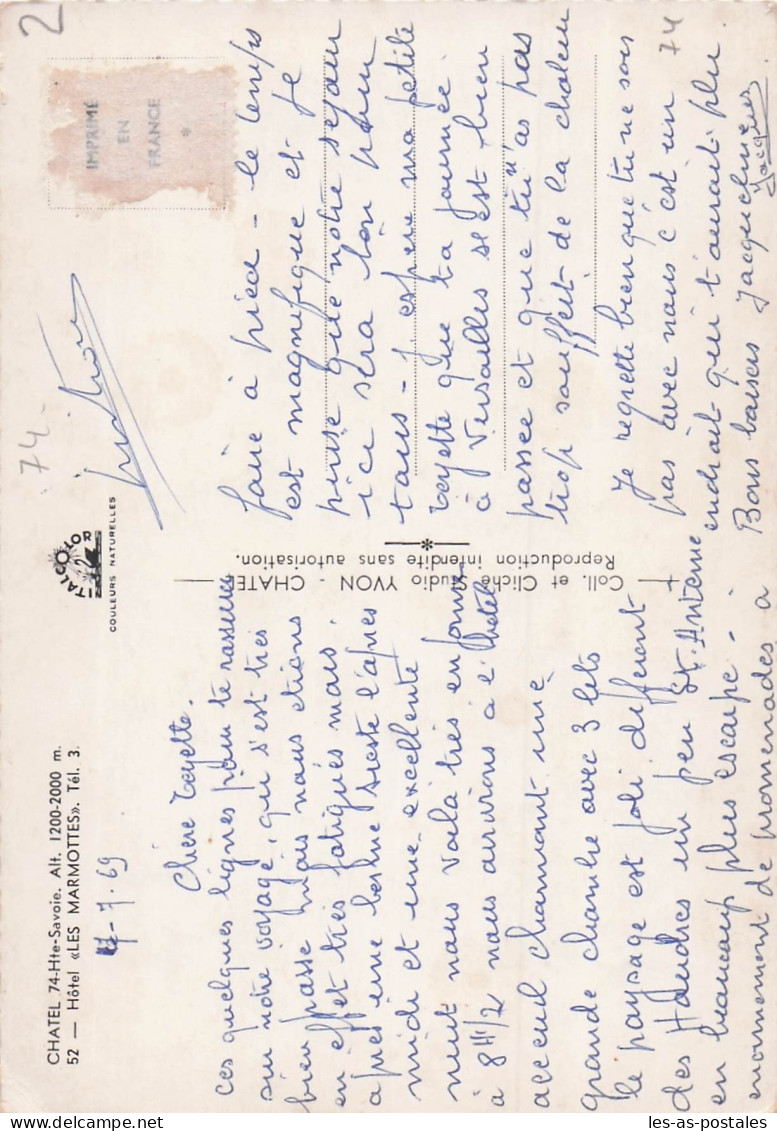 CHATEL 74-Hte-Savoie. Alt. 1200-2000 m.
52 — Hôtel «LES MARMOTTES». Tél. 3.
7-7-69
Chère Zezette.
ces quelques lignes pour te rassurer
sur notre voyage, qui s'est très
bien passé mais nous étions
en effet très fatigués mais
après une bonne sieste l'après
midi et une excellente
nuit nous voilà très en forme
à 8H1/2 nous arrivions à l'hotel
acceuil charmant une
grande chambre avec 3 lits
le paysage est joli different
des un peu St. Antoine
en beaucoup plus escarpé -
enormement de promenades à
faire à pied - le temps
est magnifique et je
pense que notre séjour
ici sera bon pour
tous - J'espère ma petite
Zezette que ta journée
à Versailles s'est bien
passée et que tu n'as pas
trop souffert de la chaleur
Je regrette bien que tu ne sois
pas avec nous c'est un
endroit qui t'aurait plu
Bons baisers Jacqueline
Jacques
ITALCOLOR
COULEURS NATURELLES
Coll. et Cliché Studio YVON - CHATEL
Reproduction interdite sans autorisation.
IMPRIMÉ
EN
FRANCE
*
74-
74
2
les-as-postales